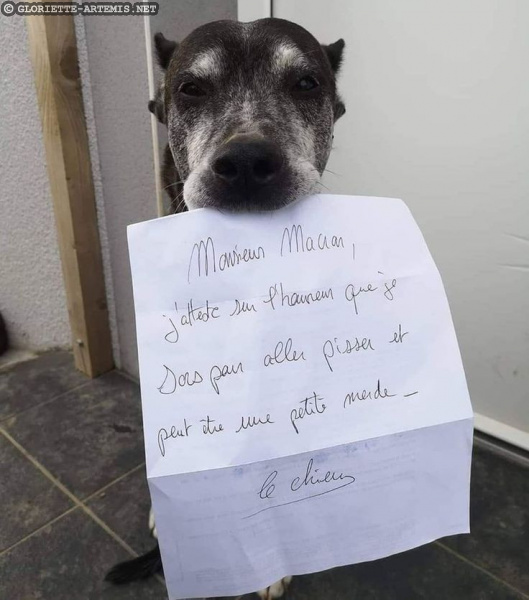 © GLORIETTE-ARTEMIS.NET
Monsieur Macron,
j'atteste sur l'honneur que je
sors pour aller pisser et
peut être une petite merde_
le chien